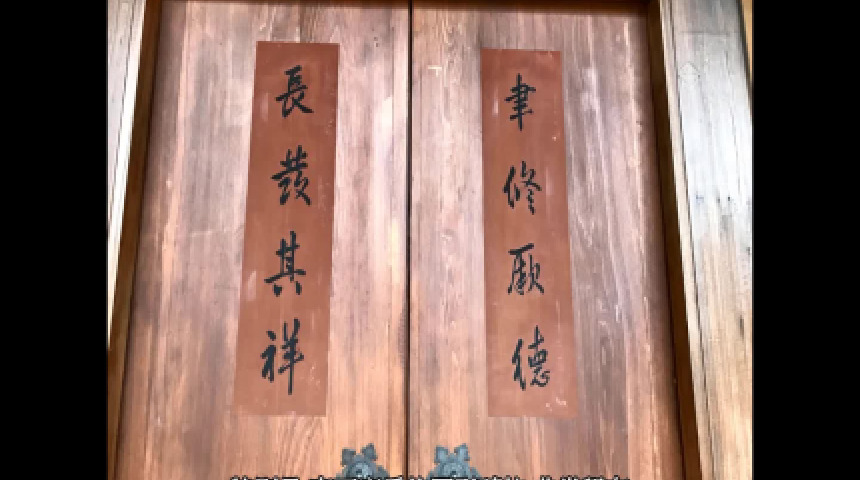 聿修厥德
長發其祥